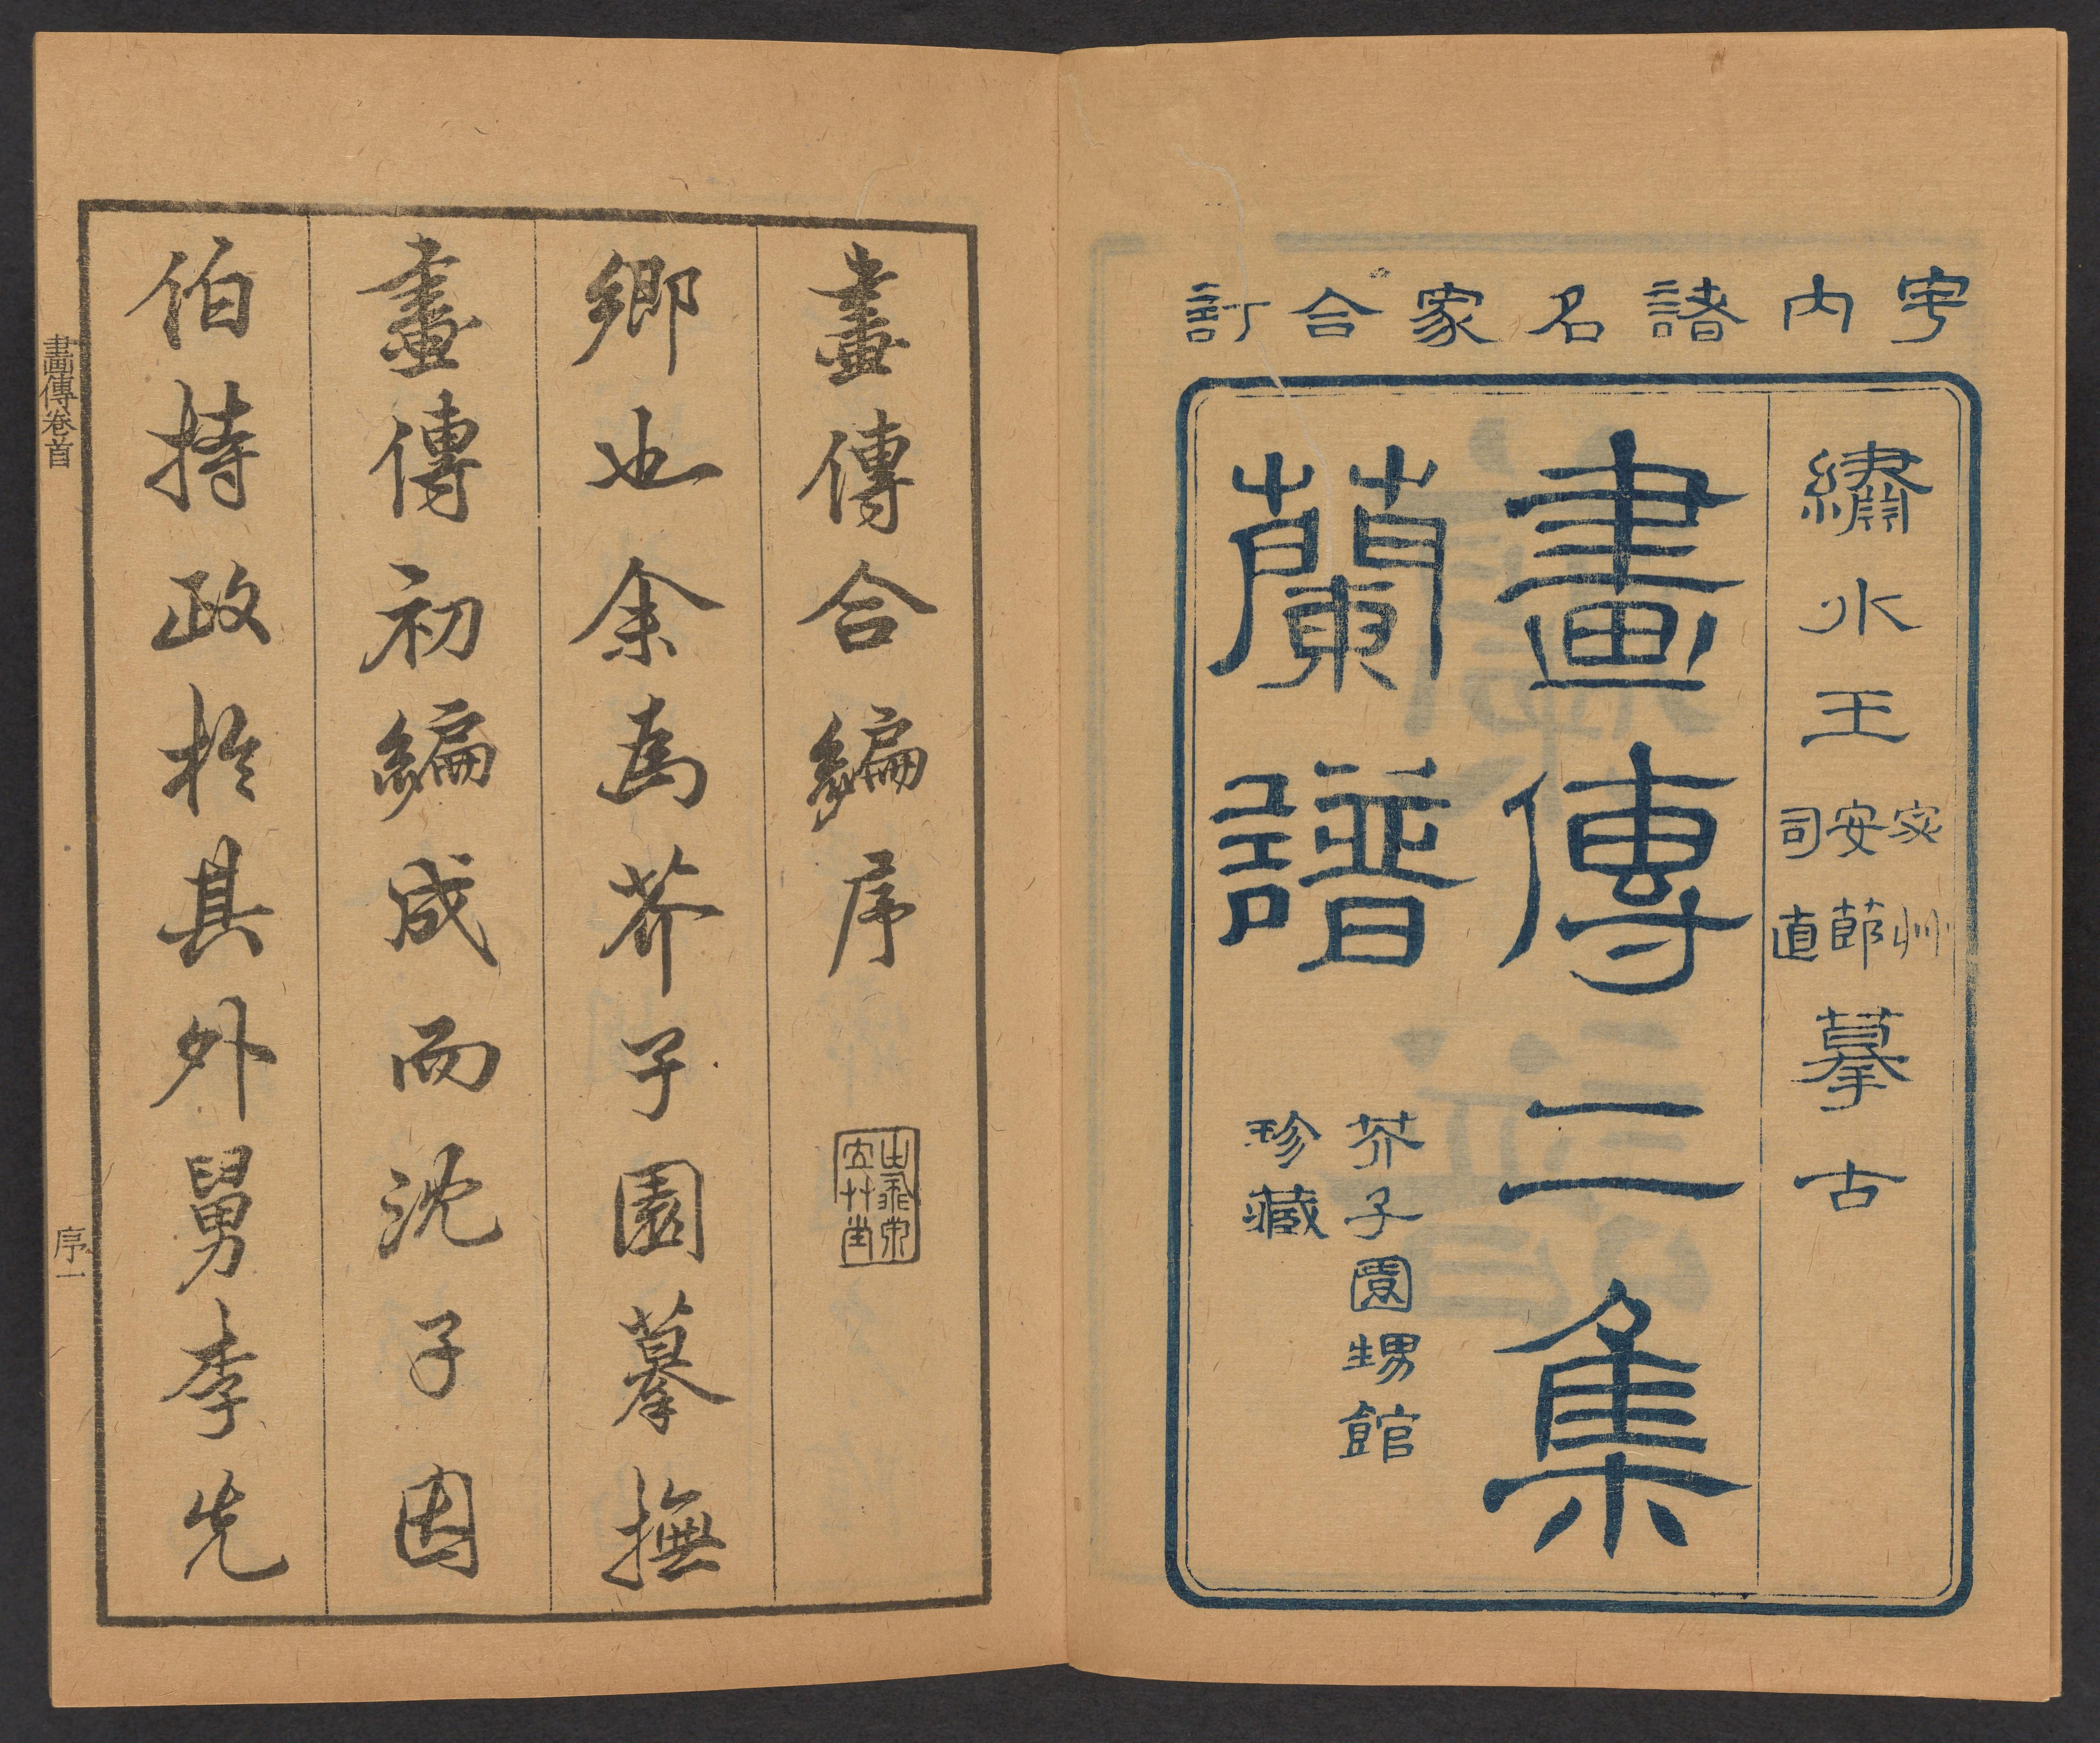 宇内諸名家合訂
繡水王宓艸安節司直摹古
畫傳三集
蘭譜
芥子園甥館
珍藏
畫傳合編序
鄉也余為芥子園摹撫
畫傳初編成而沈子因
伯持政於其外舅李先
畫傳卷首
序一